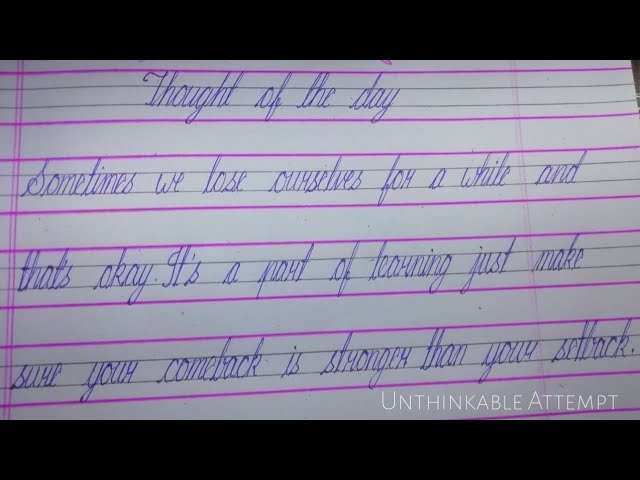 Thought of the day
Sometimes we lose ourselves for a while and
that's okay. It's a part of learning just make
sure your comeback is stronger than your setback.
UNTHINKABLE ATTEMPT